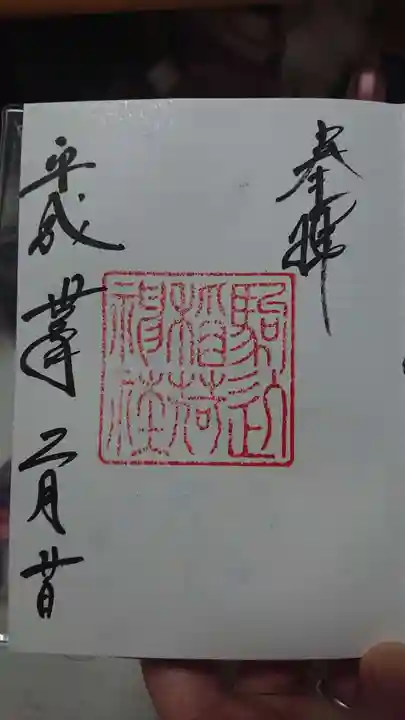 奉拝
駒込
稲荷
神社
平成丗年二月廿日